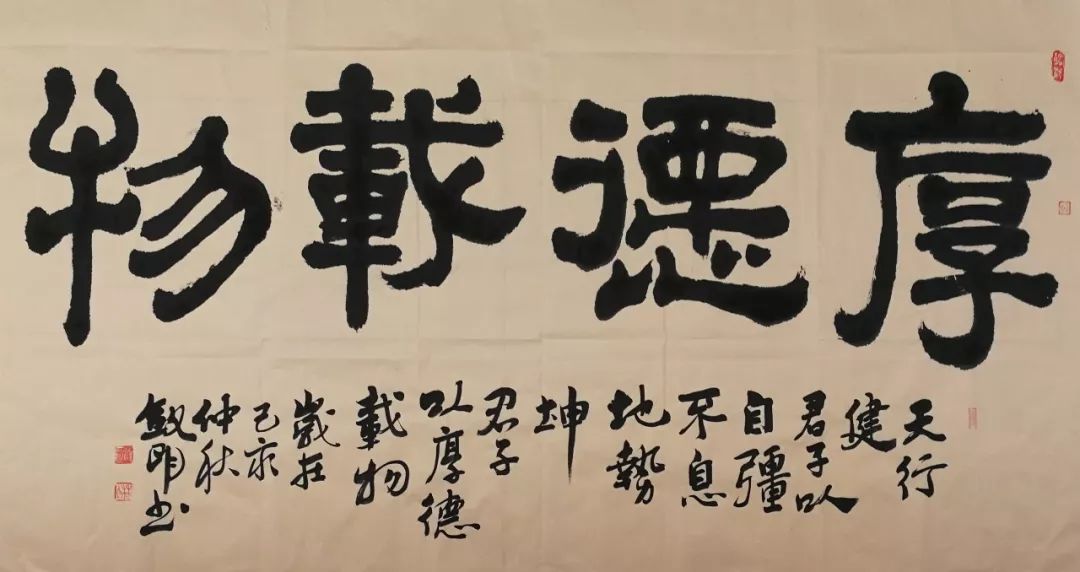 厚德載物
天行
健
君子以
自彊
不息
地勢
坤
君子
以厚德
載物
歲在
己亥
仲秋
明书